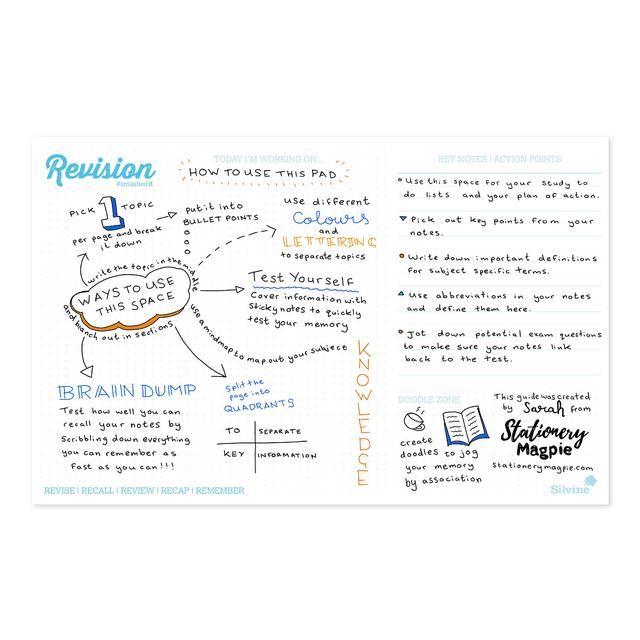 Revision
#smashedit
TODAY I'M WORKING ON...
HOW TO USE THIS PAD
PICK 1 TOPIC
per page and break
it down
put it into
BULLET POINTS
use different
Colours
and
LETTERING
to separate topics
write the topic in the middle
WAYS TO USE
THIS SPACE
and branch out in sections
Test Yourself
Cover information with
sticky notes to quickly
test your memory
use a mindmap to map out your subject
KNOWLEDGE
BRAIN DUMP
Test how well you can
recall your notes by
Scribbling down everything
you can remember as
fast as you can!!!
Split the
page into
QUADRANTS
TO SEPARATE
KEY INFORMATION
REVISE | RECALL | REVIEW | RECAP | REMEMBER
KEY NOTES | ACTION POINTS
Use this space for your study to
do lists and your plan of action.
Pick out key points from your
notes.
Write down important definitions
for subject specific terms.
Use abbreviations in your notes
and define them here.
Jot down potential exam questions
to make sure your notes link
back to the test.
DOODLE ZONE
create
doodles to jog
your memory
by association
This guide was created
by Sarah from
Stationery
Magpie
stationerymagpie.com
Silvine